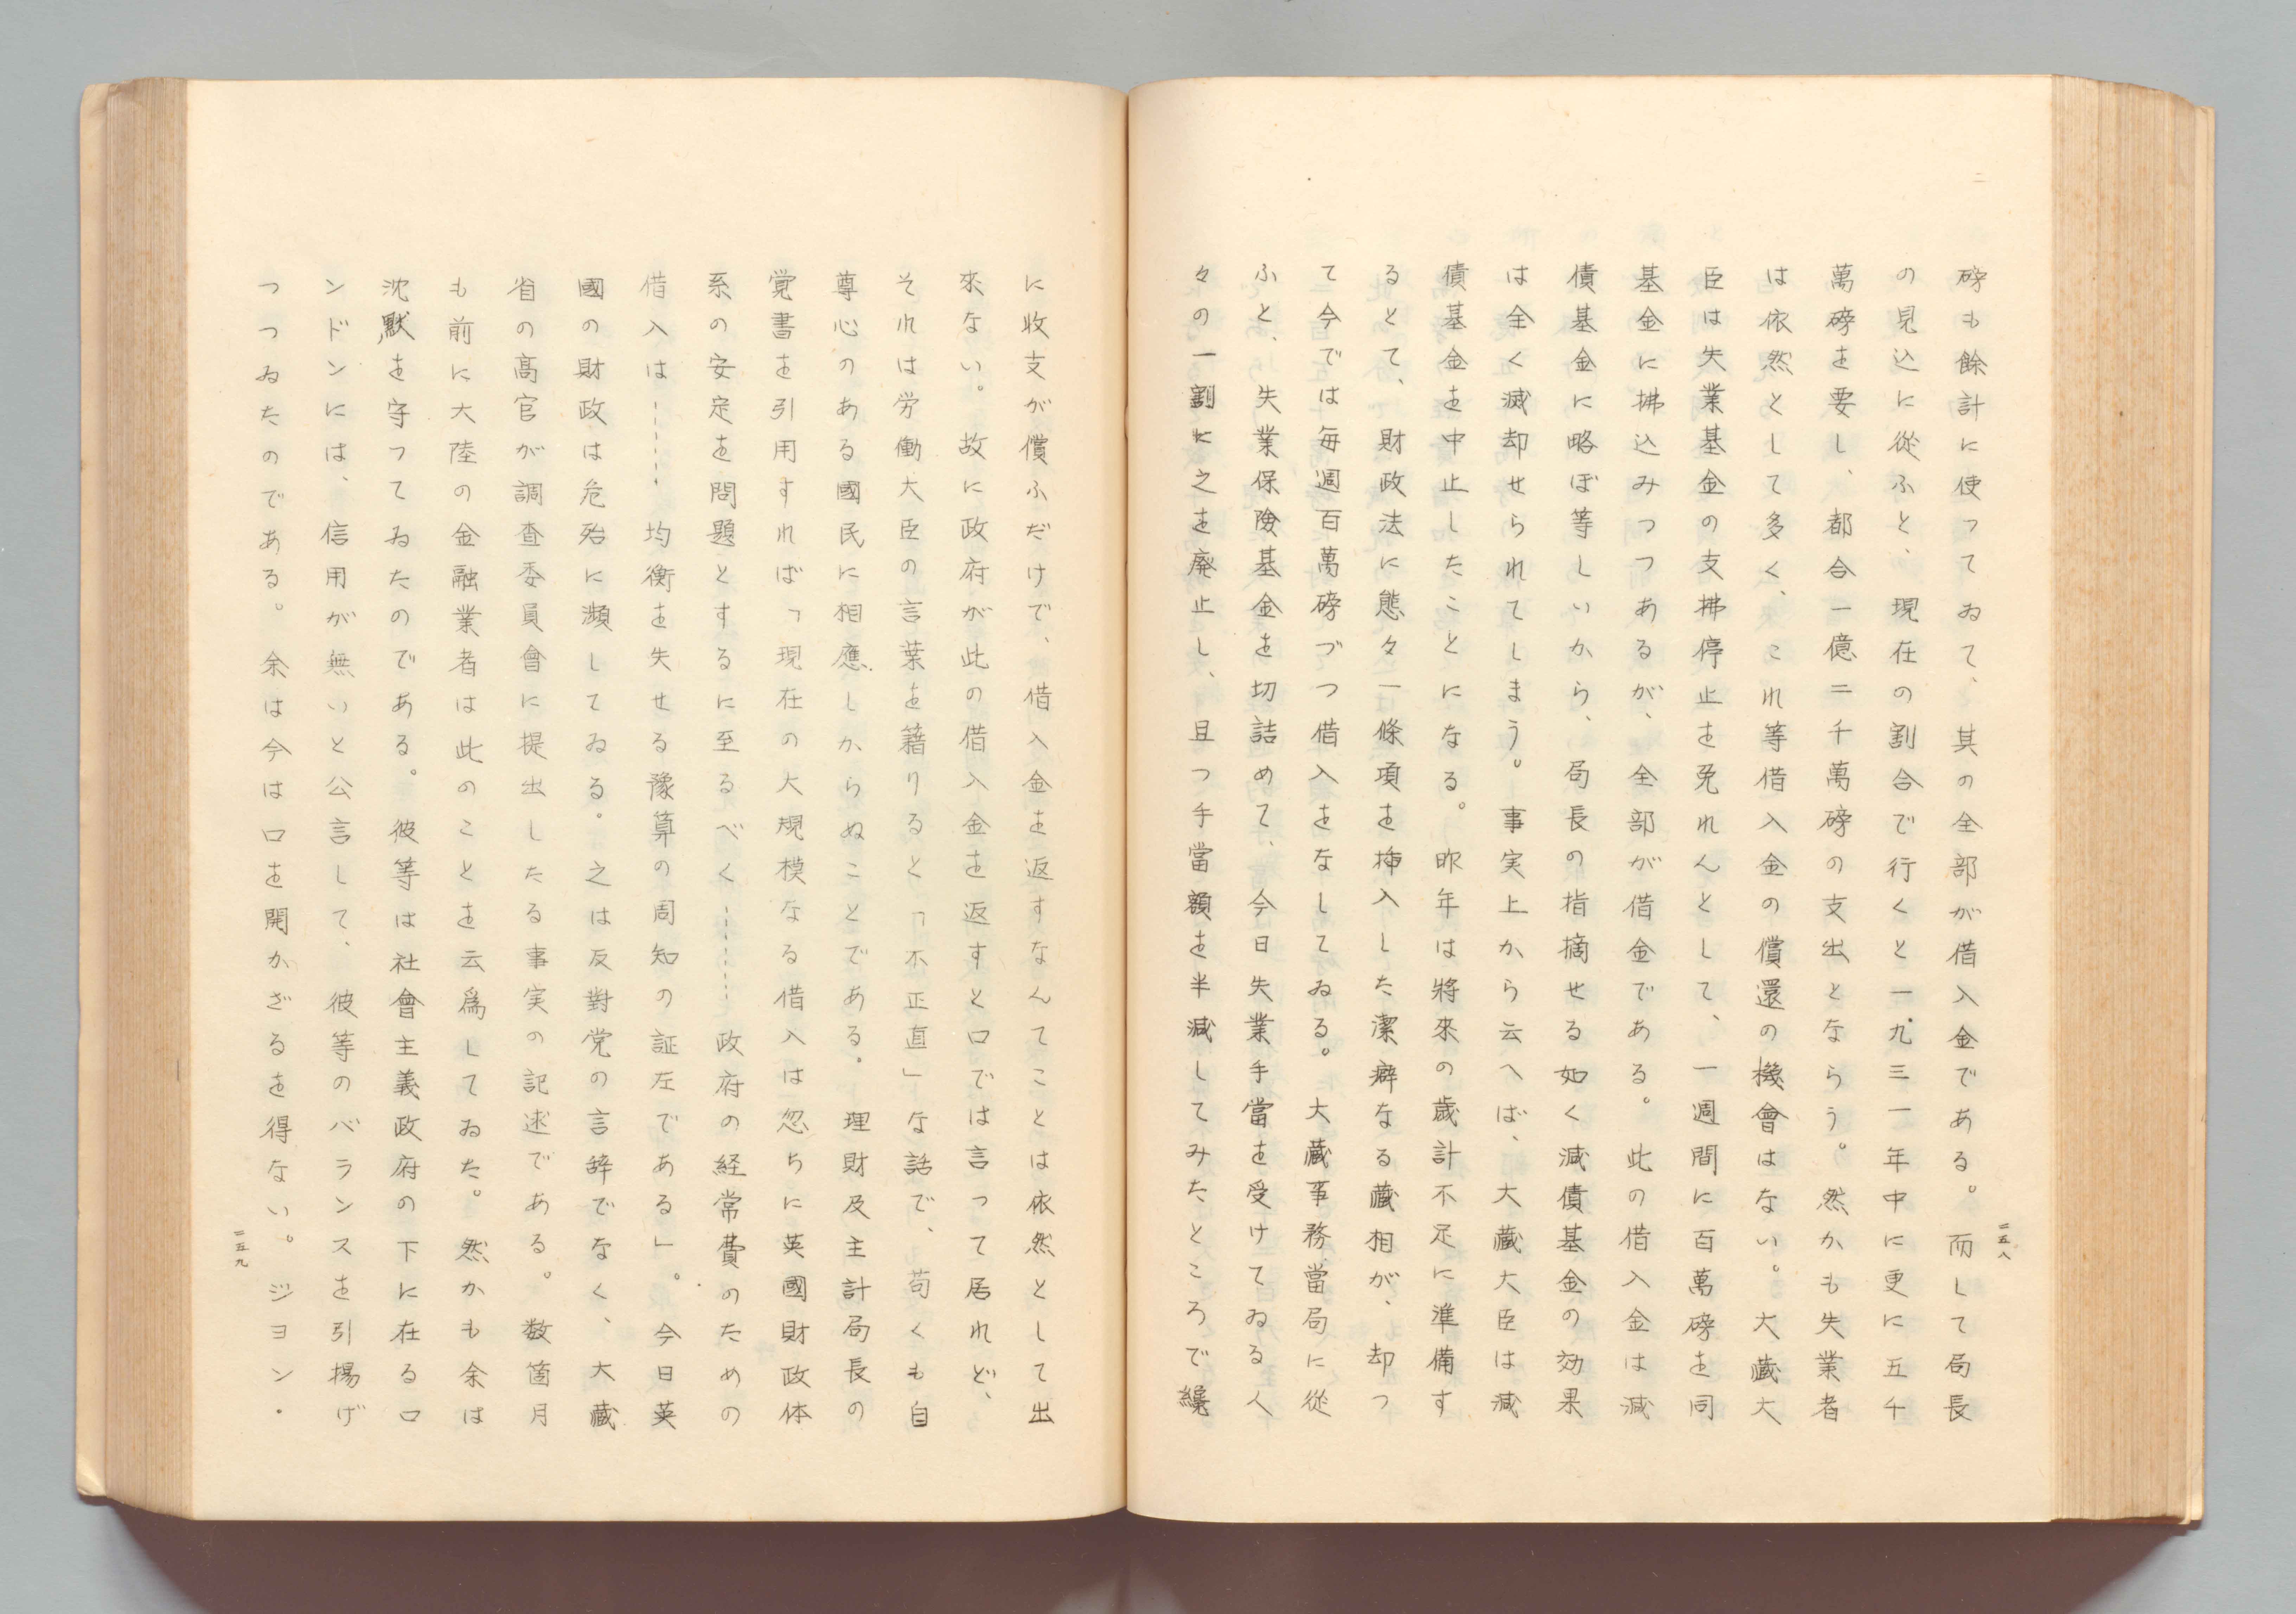 磅も餘計に使ってゐて、其の全部が借入金である。而して局長
の見込に從ふと、現在の割合で行くと一九三一年中に更に五千
萬磅を要し、都合一億二千萬磅の支出とならう。然かも失業者
は依然として多く、これ等借入金の償還の機會はない。大藏大
臣は失業基金の支拂停止を免れんとして、一週間に百萬磅を同
基金に拂込みつつあるが、全部が借金である。此の借入金は減
債基金に略ぼ等しいから、局長の指摘せる如く減債基金の効果
は全く滅却せられてしまう。事実上から云へば、大藏大臣は減
債基金を中止したことになる。昨年は將來の歳計不足に準備す
るとて、財政法に態々一條項を挿入した潔癖なる藏相が、却っ
て今では毎週百萬磅づつ借入をなしてゐる。大藏事務當局に從
ふと、失業保險基金を切詰めて、今日失業手當を受けてゐる人
々の一割に之を廃止し、且つ手當額を半減してみたところで纔
二五八
に收支が償ふだけで、借入金を返すなんてことは依然として出
來ない。故に政府が此の借入金を返すと口では言って居れど、
それは労働大臣の言葉を籍りると「不正直」な話で、苟くも自
尊心のある國民に相應しからぬことである。理財及主計局長の
覚書を引用すれば「現在の大規模なる借入は忽ちに英國財政体
系の安定を問題とするに至るべく………政府の経常費のための
借入は………均衡を失せる豫算の周知の証左である」。今日英
國の財政は危殆に瀕してゐる。之は反對党の言辞でなく、大藏
省の高官が調査委員會に提出したる事実の記述である。数箇月
も前に大陸の金融業者は此のことを云爲してゐた。然かも余は
沈默を守ってゐたのである。彼等は社會主義政府の下に在るロ
ンドンには、信用が無いと公言して、彼等のバランスを引揚げ
つつゐたのである。余は今は口を開かざるを得ない。ジョン・
二五九